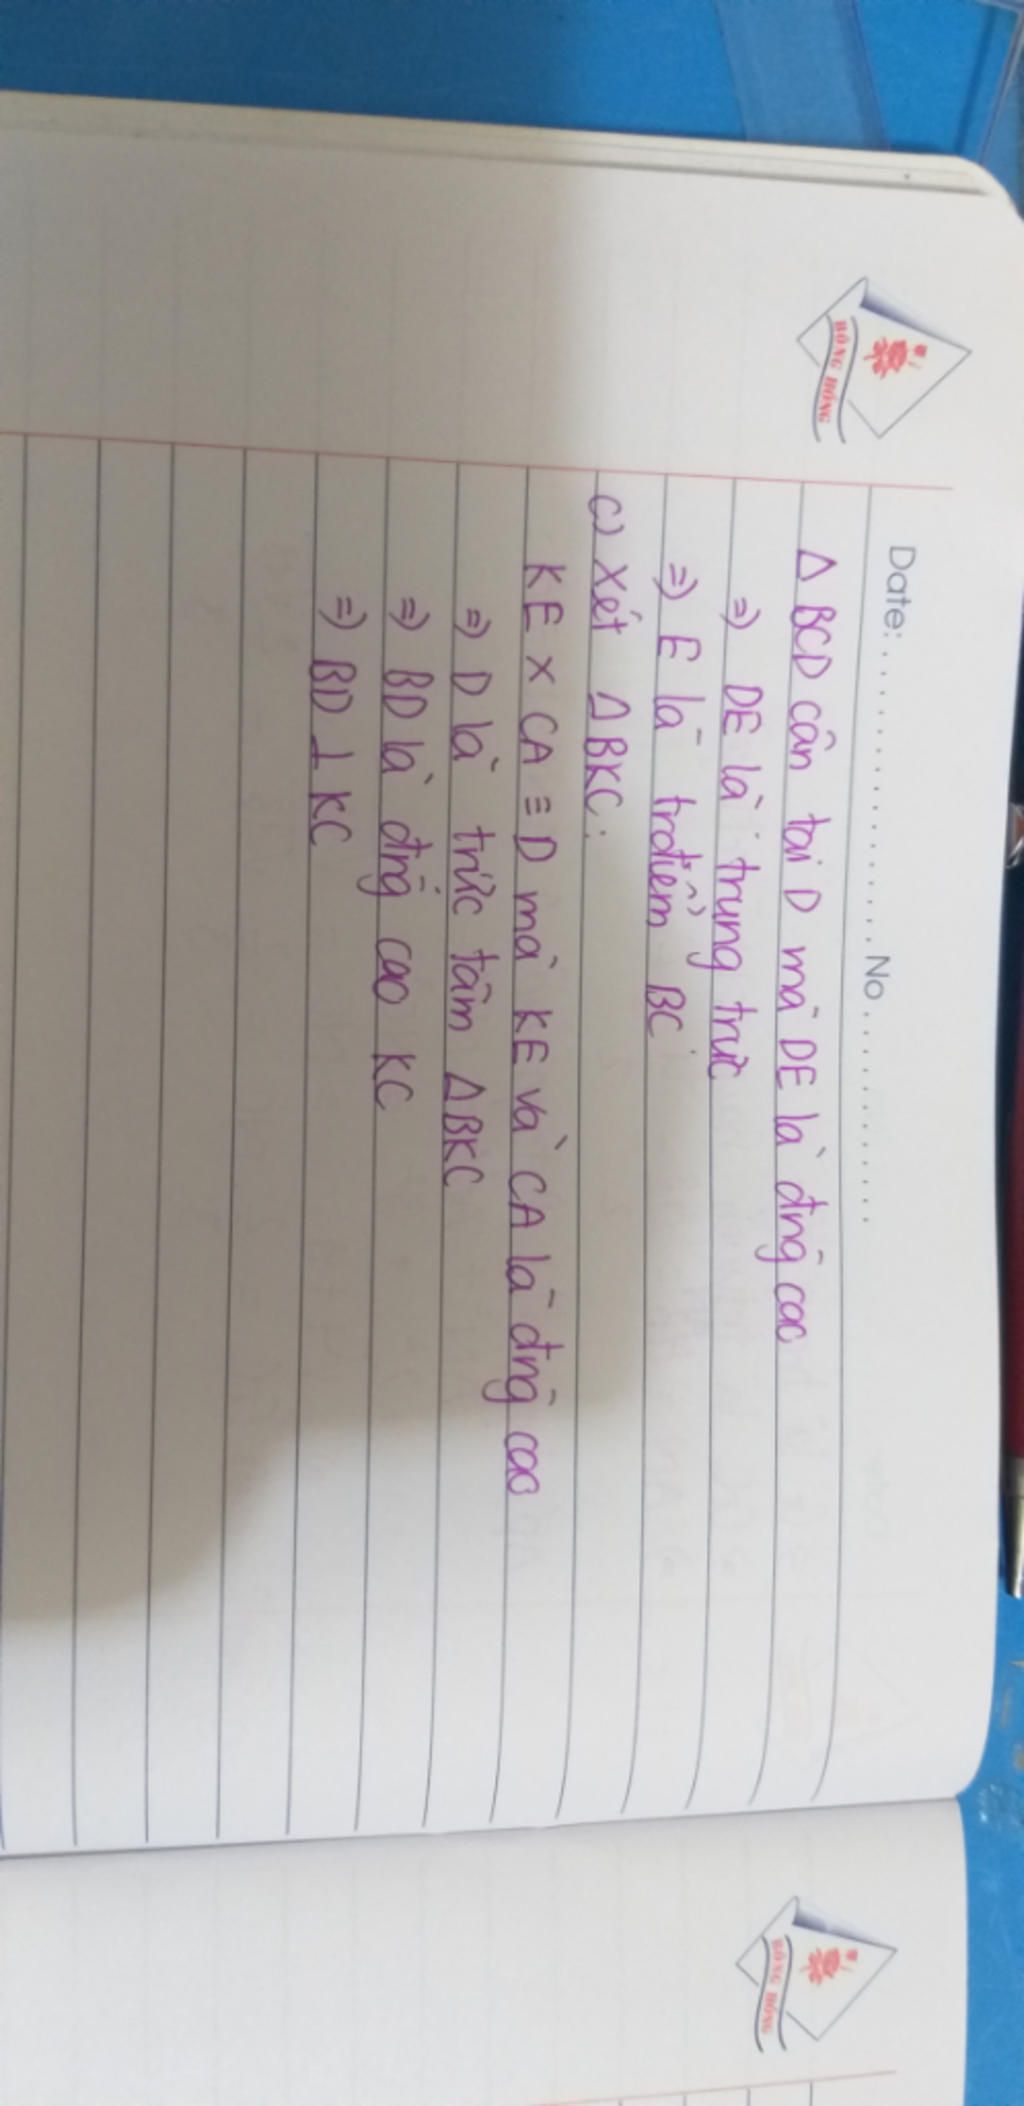 BÔNG HỒNG
Date: .......................No...................
Δ BCD cân tại D mà DE là đng cao
=) DE là trung trực
=) E là trđiểm BC
c) Xét Δ BKC:
KE x CA ≡ D mà KE và CA là đng cao
=) D là trực tâm Δ BKC
=) BD là đng cao KC
=) BD ⊥ KC
BÔNG HỒNG